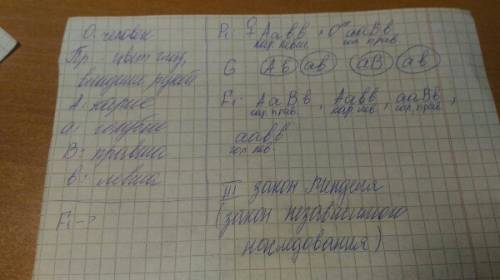 О: человек
Пр: цвет глаз,
владение рукой
А: карие
а: голубые
В: правша
в: левша
F₁ - ?
P: ♀ Аавв × ♂ ааВв
кар. левш. гол. прав.
G Ав ав аВ ав
F₁: АаВв, Аавв, ааВв,
кар. прав. кар. лев. гол. прав.
аавв
гол. лев.
III закон Менделя
(закон независимого
наследования)